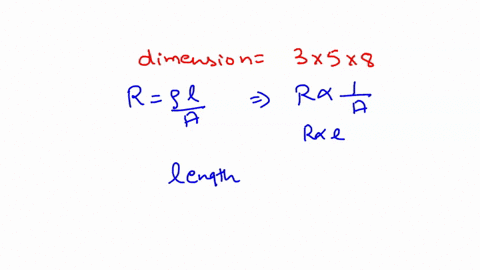 dimension= 3×5×8
R = ρl/A ⇒ R∝ 1/A
R∝ l
length